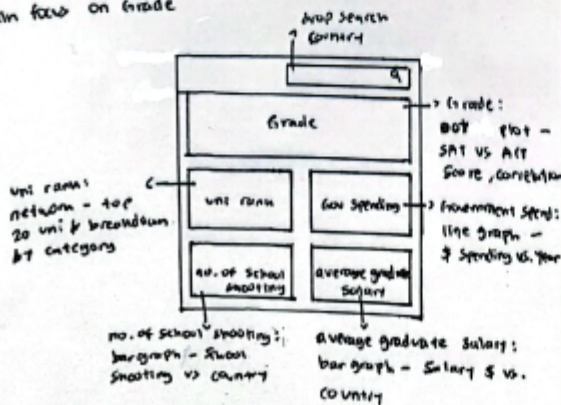 focus on Grade
drop search
country
Grade
Grade:
dot plot -
SAT vs ACT
Score, correlation
uni rank
Gov spending
uni rank:
network - top
20 uni & breakdown
by category
Government Spend:
line graph -
$ spending vs. year
no. of school
shooting
average graduate
salary
no. of school shooting:
bar graph - school
shooting vs country
average graduate salary:
bar graph - salary $ vs.
country